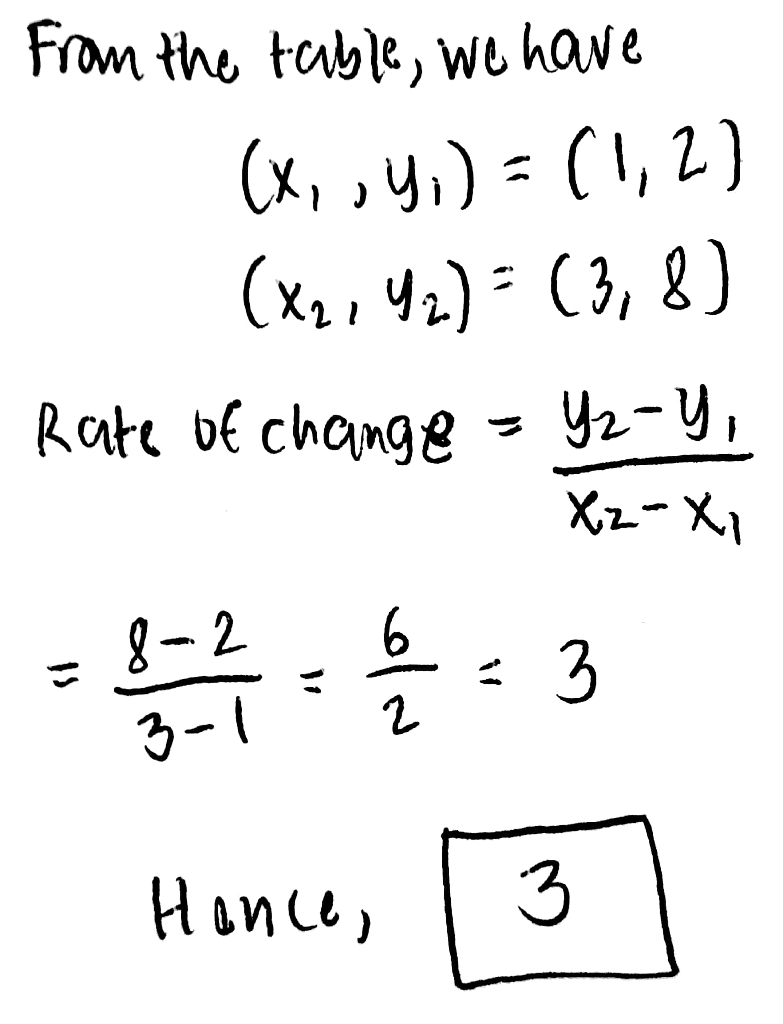 From the table, we have
(x₁, y₁) = (1, 2)
(x₂, y₂) = (3, 8)
Rate of change = y₂-y₁
x₂-x₁
= 8-2 = 6 = 3
3-1 2
Hence, 3